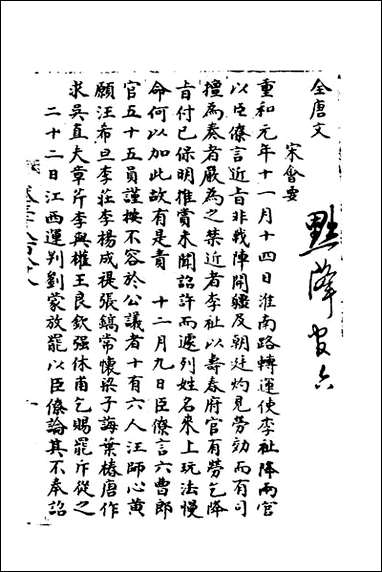 全唐文
宋會要
黜降官六
重和元年十一月十四日淮南路轉運使李祉降兩官
以臣僚言近旨非戰陣開疆及朝廷灼見勞効而有司
擅為奏者嚴為之禁近者李祉以壽春府官有勞乞降
旨付已保明推賞未聞詔許而遽列姓名來上玩法慢
命何以加此故有是責　十二月九日臣僚言六曹郎
官五十五員謹擇不容於公議者十有六人汪師心黄
願汪希旦李莊李楊成禔張鎬常懷梁子誨葉椿唐作
求吳直夫章芹李與權王良欽强休甫乞賜罷斥從之
二十二日江西運判劉蒙放罷以臣僚論其不奉詔